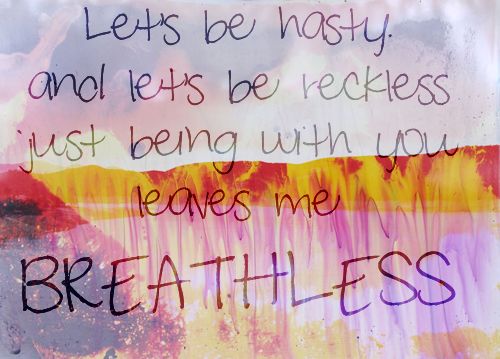 Let's be hasty.
and let's be reckless
just being with you
leaves me
BREATHLESS